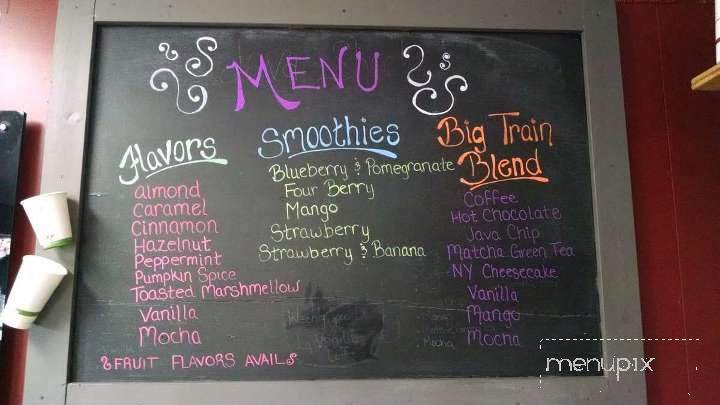 MENU
Flavors
almond
caramel
Cinnamon
Hazelnut
Peppermint
Pumpkin Spice
Toasted Marshmellow
Vanilla
Mocha
FRUIT FLAVORS AVAIL
Smoothies
Blueberry & Pomegranate
Four Berry
Mango
Strawberry
Strawberry & Banana
Big Train
Blend
Coffee
Hot Chocolate
Java Chip
Matcha Green Tea
NY Cheesecake
Vanilla
Mango
Mocha
menupix